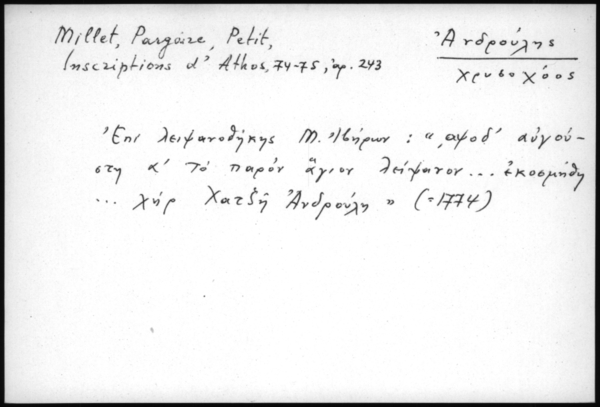 Millet, Pargoire, Petit,
Inscriptions d'Athos, 74-75, ἀρ. 243
Ἀνδρούλης
χρυσοχόος
Ἐπὶ λειψανοθήκης Μ. Ἰβήρων : "͵αψοδ' αὐγού-
στῃ α' τὸ παρὸν ἅγιον λείψανον... ἐκοσμήθη
... χὴρ Χατζῆ Ἀνδρούλη" (=1774)